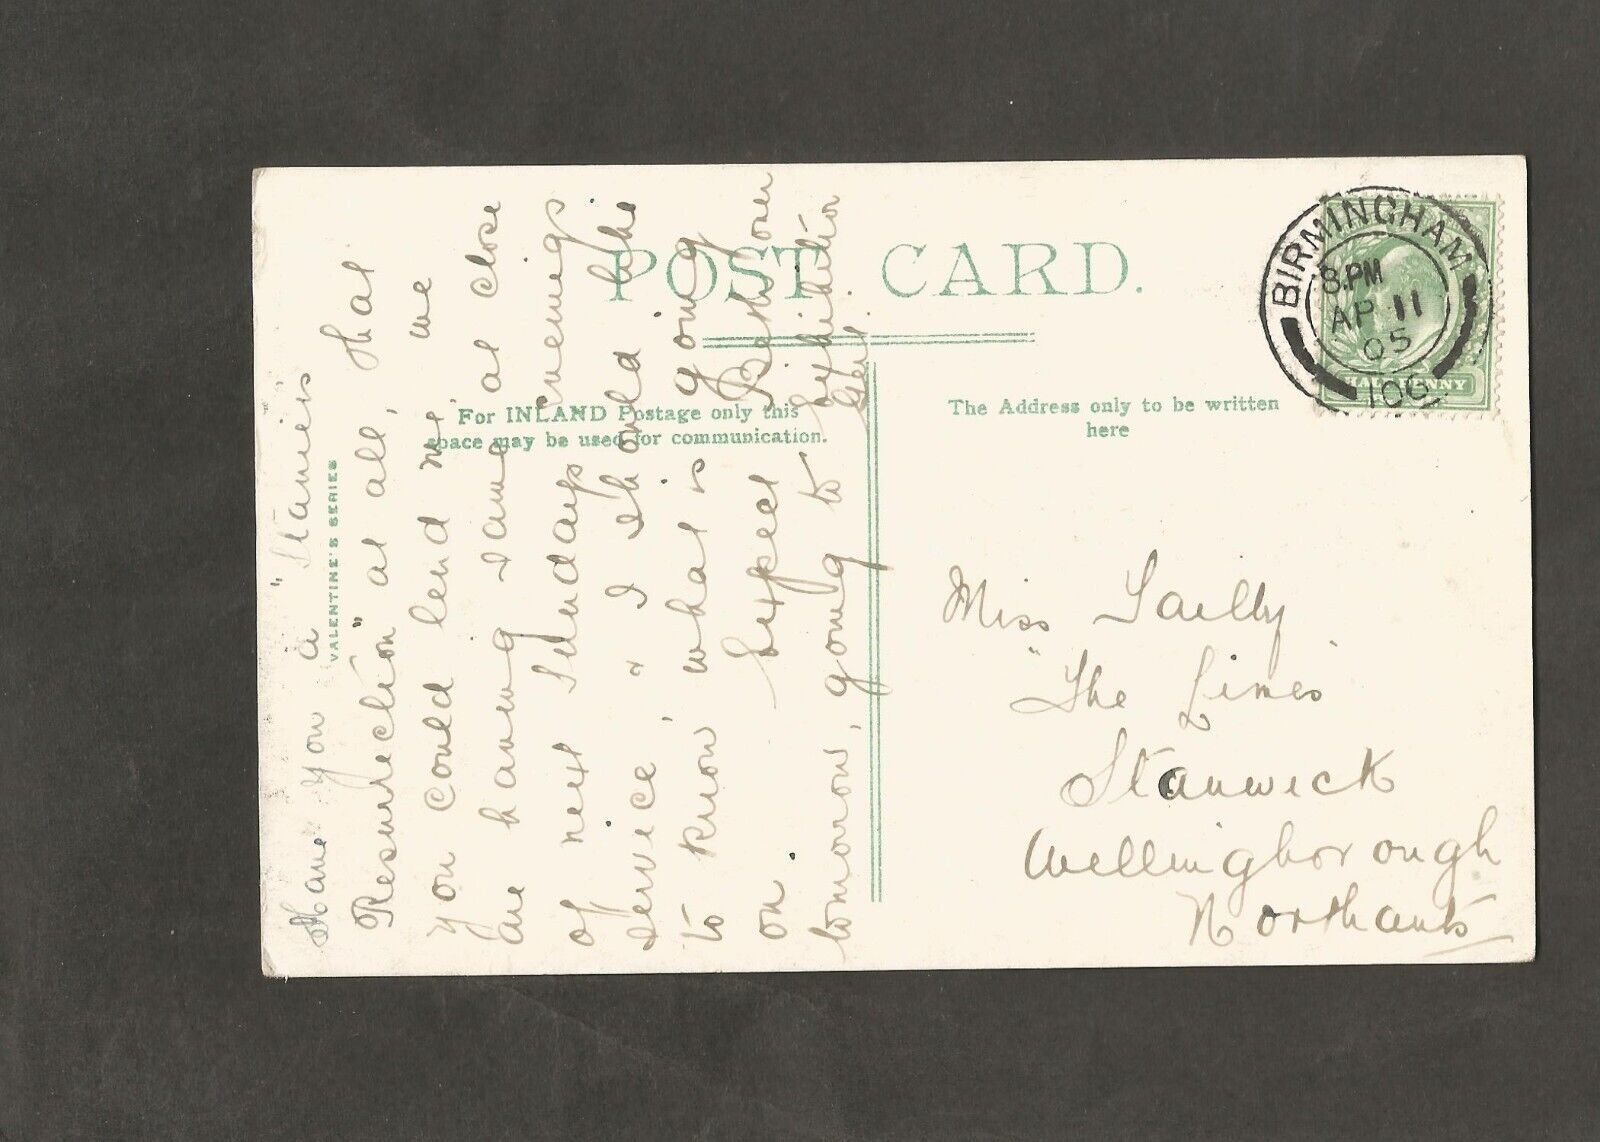 POST CARD.
For INLAND Postage only this
space may be used for communication.
The Address only to be written
here
VALENTINE'S SERIES
BIRMINGHAM
8.PM
AP 11
05
HALF PENNY
Have you a "Stainer's
Resurrection" at all, that
you could lend me, we
are having same at close
of next Sundays evenings
service, & I should like
to know what is going
on. Expect
tomorrow, going to Exhibition
Gert
Miss Sailly
"The Limes"
Stanwick
Wellingborough
Northants